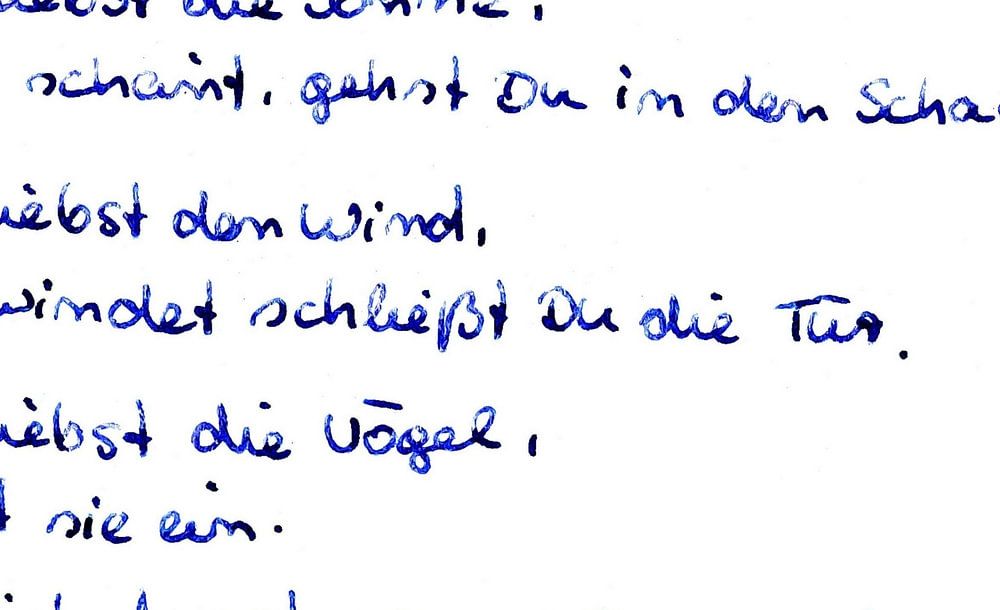 liebst die Sonne,
scheint, gehst Du in den Scha
liebst den Wind,
windet schließt Du die Tür.
liebst die Vögel,
sie ein.